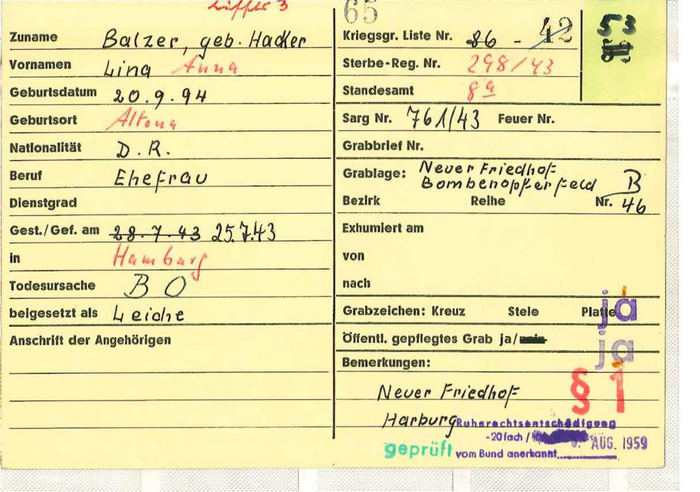 Ziffer 3
65
Zuname Balzer, geb. Hacker
Vornamen Lina Anna
Geburtsdatum 20.9.94
Geburtsort Altona
Nationalität D.R.
Beruf Ehefrau
Dienstgrad
Gest./Gef. am 28.7.43 25.7.43
in Hamburg
Todesursache BO
beigesetzt als Leiche
Anschrift der Angehörigen
Kriegsgr. Liste Nr. 86 - 42
53
Sterbe-Reg. Nr. 298/43
Standesamt 8a
Sarg Nr. 761/43 Feuer Nr.
Grabbrief Nr.
Grablage: Neuer Friedhof
Bombenopferfeld B
Bezirk Reihe Nr. 46
Exhumiert am
von
nach
Grabzeichen: Kreuz Stele Platte
ja
Öffentl. gepflegtes Grab ja/nein
ja
Bemerkungen:
§ 1
Neuer Friedhof
Harburg
Ruherechtsentschädigung
-20fach /
AUG. 1959
geprüft vom Bund anerkannt